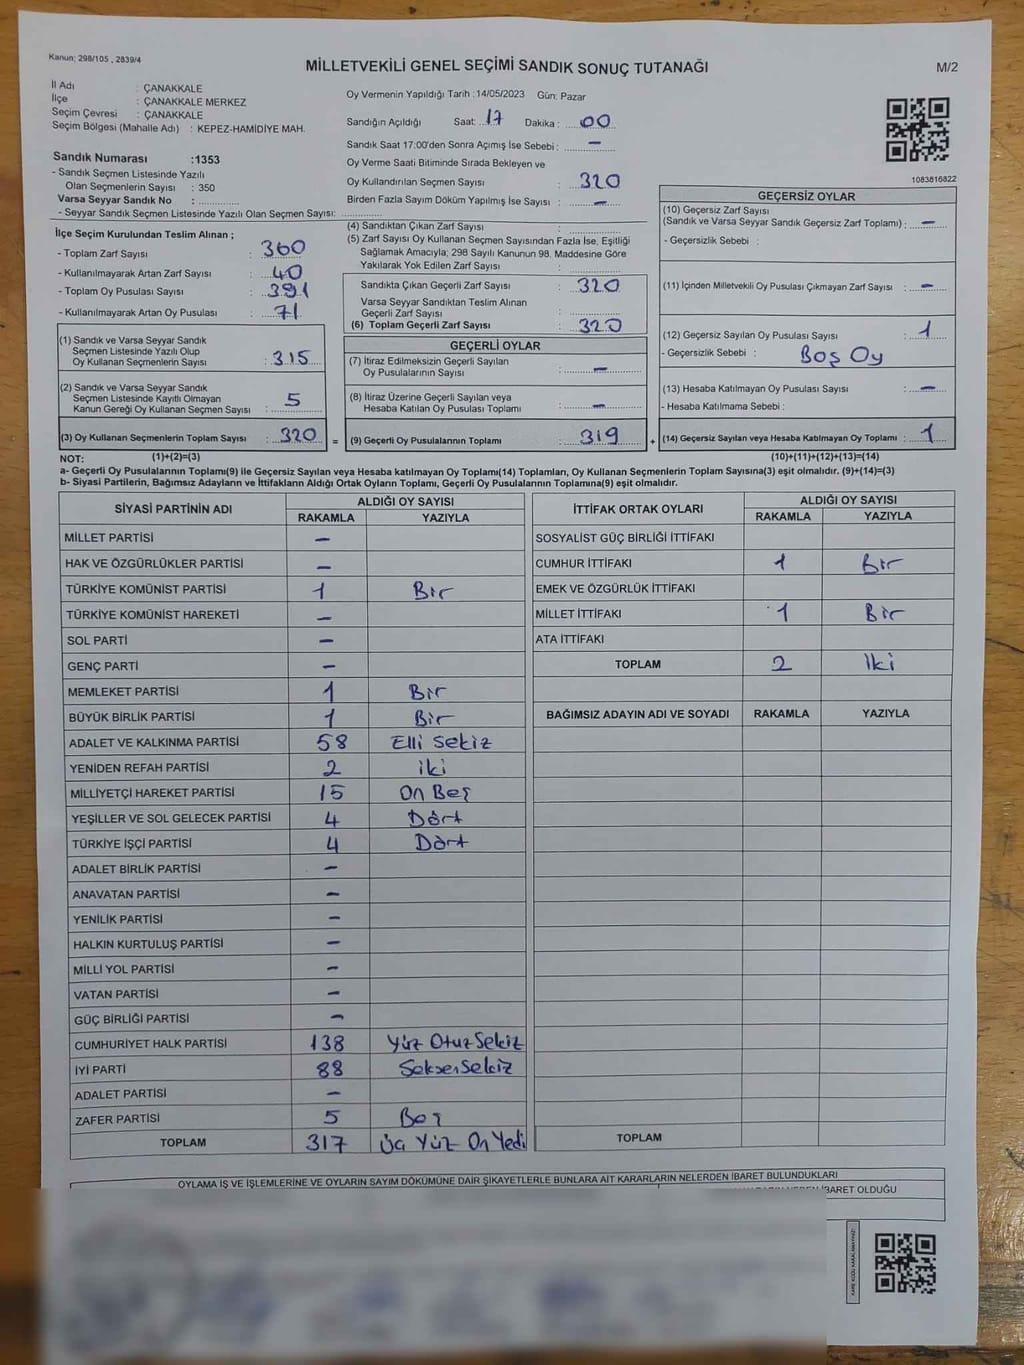 Kanun; 298/105 , 2839/4
MİLLETVEKİLİ GENEL SEÇİMİ SANDIK SONUÇ TUTANAĞI
M/2
İl Adı : ÇANAKKALE
İlçe : ÇANAKKALE MERKEZ
Seçim Çevresi : ÇANAKKALE
Seçim Bölgesi (Mahalle Adı) : KEPEZ-HAMİDİYE MAH.
Sandık Numarası :1353
- Sandık Seçmen Listesinde Yazılı
Olan Seçmenlerin Sayısı : 350
Varsa Seyyar Sandık No :
- Seyyar Sandık Seçmen Listesinde Yazılı Olan Seçmen Sayısı:
İlçe Seçim Kurulundan Teslim Alınan ;
- Toplam Zarf Sayısı : 360
- Kullanılmayarak Artan Zarf Sayısı : 40
- Toplam Oy Pusulası Sayısı : 391
- Kullanılmayarak Artan Oy Pusulası : 71
(1) Sandık ve Varsa Seyyar Sandık
Seçmen Listesinde Yazılı Olup
Oy Kullanan Seçmenlerin Sayısı : 315
(2) Sandık ve Varsa Seyyar Sandık
Seçmen Listesinde Kayıtlı Olmayan
Kanun Gereği Oy Kullanan Seçmen Sayısı : 5
(3) Oy Kullanan Seçmenlerin Toplam Sayısı : 320 =
Oy Vermenin Yapıldığı Tarih :14/05/2023 Gün: Pazar
Sandığın Açıldığı Saat: 17 Dakika : 00
Sandık Saat 17:00'den Sonra Açımış İse Sebebi : -
Oy Verme Saati Bitiminde Sırada Bekleyen ve
Oy Kullandırılan Seçmen Sayısı : 320
Birden Fazla Sayım Döküm Yapılmış İse Sayısı : -
(4) Sandıktan Çıkan Zarf Sayısı :
(5) Zarf Sayısı Oy Kullanan Seçmen Sayısından Fazla İse, Eşitliği
Sağlamak Amacıyla; 298 Sayılı Kanunun 98. Maddesine Göre
Yakılarak Yok Edilen Zarf Sayısı :
Sandıkta Çıkan Geçerli Zarf Sayısı : 320
Varsa Seyyar Sandıktan Teslim Alınan
Geçerli Zarf Sayısı :
(6) Toplam Geçerli Zarf Sayısı : 320
GEÇERLİ OYLAR
(7) İtiraz Edilmeksizin Geçerli Sayılan
Oy Pusulalarının Sayısı : -
(8) İtiraz Üzerine Geçerli Sayılan veya
Hesaba Katılan Oy Pusulası Toplamı : -
(9) Geçerli Oy Pusulalarının Toplamı : 319 +
1083816822
GEÇERSİZ OYLAR
(10) Geçersiz Zarf Sayısı
(Sandık ve Varsa Seyyar Sandık Geçersiz Zarf Toplamı) : -
- Geçersizlik Sebebi :
(11) İçinden Milletvekili Oy Pusulası Çıkmayan Zarf Sayısı : -
(12) Geçersiz Sayılan Oy Pusulası Sayısı : 1
- Geçersizlik Sebebi : Boş Oy
(13) Hesaba Katılmayan Oy Pusulası Sayısı : -
- Hesaba Katılmama Sebebi :
(14) Geçersiz Sayılan veya Hesaba Katılmayan Oy Toplamı : 1
NOT: (1)+(2)=(3) (10)+(11)+(12)+(13)=(14)
a- Geçerli Oy Pusulalarının Toplamı(9) ile Geçersiz Sayılan veya Hesaba katılmayan Oy Toplamı(14) Toplamları, Oy Kullanan Seçmenlerin Toplam Sayısına(3) eşit olmalıdır. (9)+(14)=(3)
b- Siyasi Partilerin, Bağımsız Adayların ve İttifakların Aldığı Ortak Oyların Toplamı, Geçerli Oy Pusulalarının Toplamına(9) eşit olmalıdır.
SİYASİ PARTİNİN ADI ALDIĞI OY SAYISI
RAKAMLA YAZIYLA
MİLLET PARTİSİ -
HAK VE ÖZGÜRLÜKLER PARTİSİ -
TÜRKİYE KOMÜNİST PARTİSİ 1 Bir
TÜRKİYE KOMÜNİST HAREKETİ -
SOL PARTİ -
GENÇ PARTİ -
MEMLEKET PARTİSİ 1 Bir
BÜYÜK BİRLİK PARTİSİ 1 Bir
ADALET VE KALKINMA PARTİSİ 58 Elli Sekiz
YENİDEN REFAH PARTİSİ 2 iki
MİLLİYETÇİ HAREKET PARTİSİ 15 On Beş
YEŞİLLER VE SOL GELECEK PARTİSİ 4 Dört
TÜRKİYE İŞÇİ PARTİSİ 4 Dört
ADALET BİRLİK PARTİSİ -
ANAVATAN PARTİSİ -
YENİLİK PARTİSİ -
HALKIN KURTULUŞ PARTİSİ -
MİLLİ YOL PARTİSİ -
VATAN PARTİSİ -
GÜÇ BİRLİĞİ PARTİSİ -
CUMHURİYET HALK PARTİSİ 138 Yüz Otuz Sekiz
İYİ PARTİ 88 Seksen Sekiz
ADALET PARTİSİ -
ZAFER PARTİSİ 5 Beş
TOPLAM 317 Üç Yüz On Yedi
İTTİFAK ORTAK OYLARI ALDIĞI OY SAYISI
RAKAMLA YAZIYLA
SOSYALİST GÜÇ BİRLİĞİ İTTİFAKI
CUMHUR İTTİFAKI 1 Bir
EMEK VE ÖZGÜRLÜK İTTİFAKI
MİLLET İTTİFAKI 1 Bir
ATA İTTİFAKI
TOPLAM 2 İki
BAĞIMSIZ ADAYIN ADI VE SOYADI RAKAMLA YAZIYLA
TOPLAM
OYLAMA İŞ VE İŞLEMLERİNE VE OYLARIN SAYIM DÖKÜMÜNE DAİR ŞİKAYETLERLE BUNLARA AİT KARARLARIN NELERDEN İBARET BULUNDUKLARI
İBARET OLDUĞU
KARE KODU KARALAMAYINIZ!